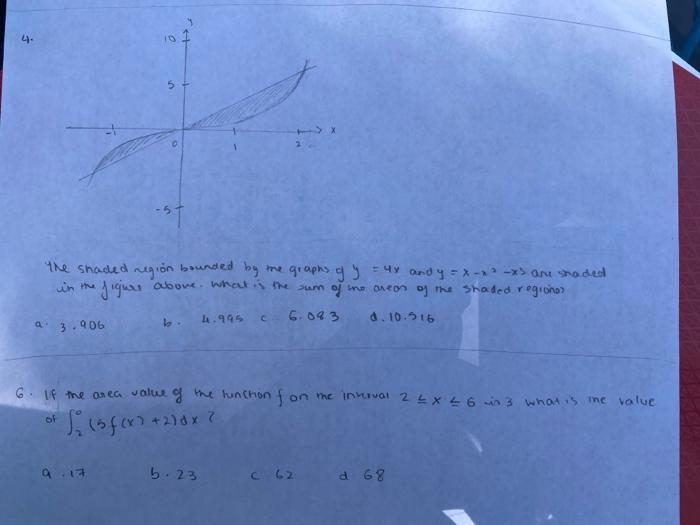 4.
y
10
5
-1
0
1
2
x
-5
The shaded region bounded by the graphs of y = 4x and y = x - x² - x³ are shaded
in the figure above. What is the sum of the areas of the shaded regions?
a. 3.906 b. 4.995 c. 6.083 d. 10.516
6. If the area value of the function f on the interval 2 ≤ x ≤ 6 is 3 what is the value
of ∫₂⁶ (5f(x) + 2) dx ?
a. 17 b. 23 c. 62 d 68